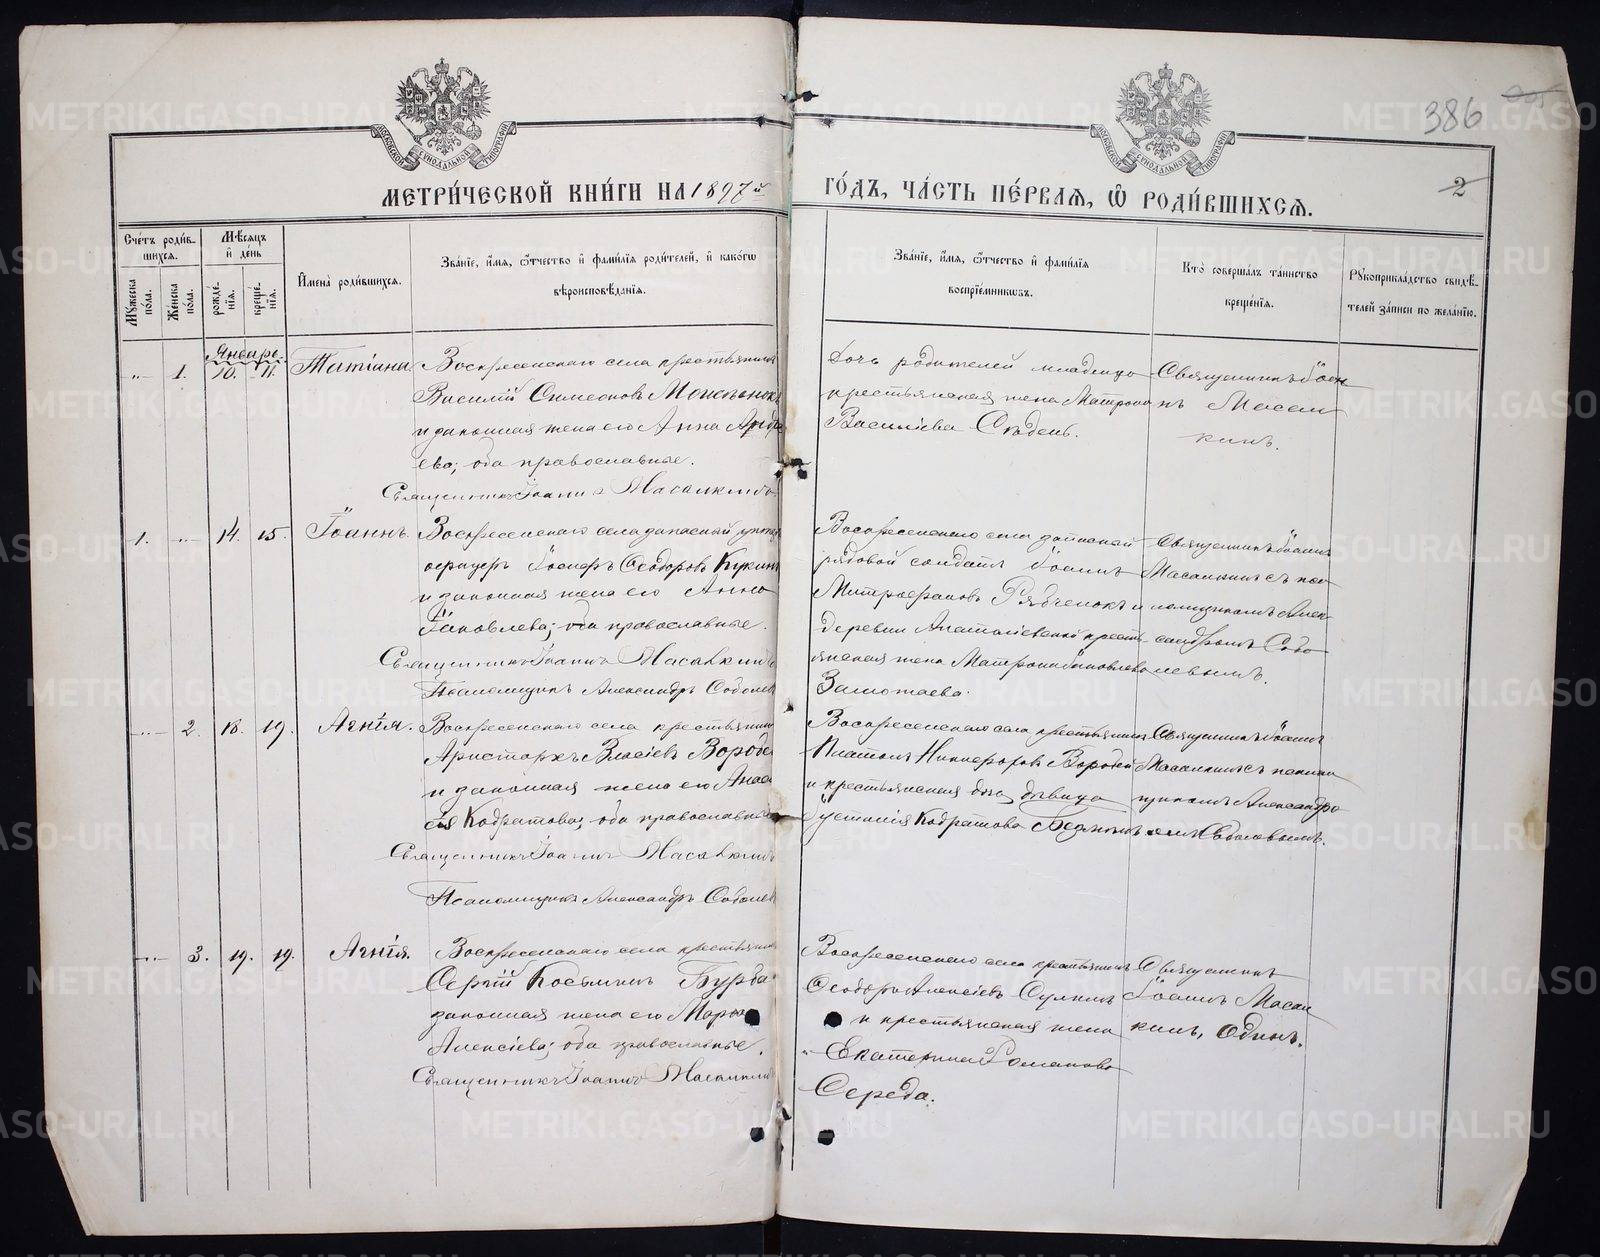 386
2
МЕТРИ́ЧЕСКОЙ КНИ́ГИ НА 1897й ГО́ДЪ, ЧА́СТЬ ПЕ́РВАЯ, Ѡ РОДИ́ВШИХСЯ.
МОСКОВСКОЙ СѴНОДАЛЬНОЙ ТИПОГРАФІИ
МОСКОВСКОЙ СѴНОДАЛЬНОЙ ТИПОГРАФІИ
Сче́тъ роди́в-
шихся.
Мꙋжеска по́ла.
Же́нска по́ла.
Мѣ́сяцъ
и҆ де́нь
рожде́-
нїя.
креще́-
нїя.
И҆мена̀ роди́вшихся.
Зва́нїе, и҆́мя, ѻ҆́тчество и҆ фами́лїя роди́телей, и҆ како́гѡ
вѣроисповѣ́данїя.
Зва́нїе, и҆́мя, ѻ҆́тчество и҆ фами́лїя
воспрїе́мникѡвъ.
Кто̀ соверша́лъ та́инство
креще́нїя.
Рꙋкоприкла́дство свидѣ́-
телей за́писи по жела́нїю.
Январь.
„ 1. 10. 11. Татіана
Воскресенскаго села крестьянинъ
Василій Симеоновъ
и законная жена его Анна Андре
ева; оба православные.
Священникъ Іоаннъ Масалкинъ
Дочь родителей младенца
крестьянская жена Матрона
Васильева
Священникъ Іоан
нъ Масал
кинъ.
1. „ 14. 15. Іоаннъ.
Воскресенскаго села запасный унтеръ
офицеръ Іосифъ Ѳеодоровъ Кукин
и законная жена его Анна
Іаковлева; оба православные.
Священникъ Іоаннъ Масалкинъ
Псаломщикъ Александръ Соболев
Воскресенскаго села запасный
рядовой солдатъ Іоаннъ
Митрофановъ Рябченокъ и
деревни крестъ
янская жена Матрона Іаковлева
Священникъ Іоаннъ
Масалкинъ съ пса
ломщикомъ Алек
сандромъ Собо
левымъ.
„ 2. 18. 19. Агнія.
Воскресенскаго села крестьянин
Аристархъ Власіевъ Воробе
и законная жена его Анас
сія Кодратова; оба православные
Священникъ Іоаннъ Масалкинъ
Псаломщикъ Александръ Соболев
Воскресенскаго села крестьянинъ
Платонъ Никифоровъ Воробей
и крестьянская дѣвица
Іустинія Кодратова
Священникъ Іоаннъ
Масалкинъ съ псалом
щикомъ Александро
мъ Соболевымъ.
„ 3. 19. 19. Агнія.
Воскресенскаго села крестьянин
Сергій Косьминъ Бурба
законная жена его Марѳа
Алексіева; оба православные.
Священникъ Іоаннъ Масалкинъ
Воскресенскаго села крестьянинъ
Ѳеодоръ Алексіевъ
и крестьянская жена
Екатерина Романова
Середа.
Священникъ
Іоаннъ Масал
кинъ, одинъ.
METRIKI.GASO-URAL.RU